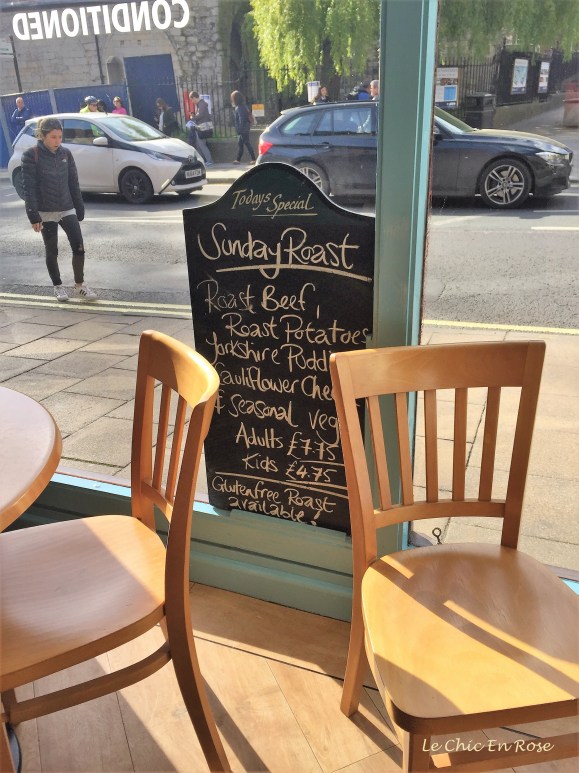 CONDITIONED
Todays Special
Sunday Roast
Roast Beef,
Roast Potatoes
Yorkshire Puddi
Cauliflower Chee
& Seasonal veg
Adults £7.75
Kids £4.75
Glutenfree Roast
available!
Le Chic En Rose